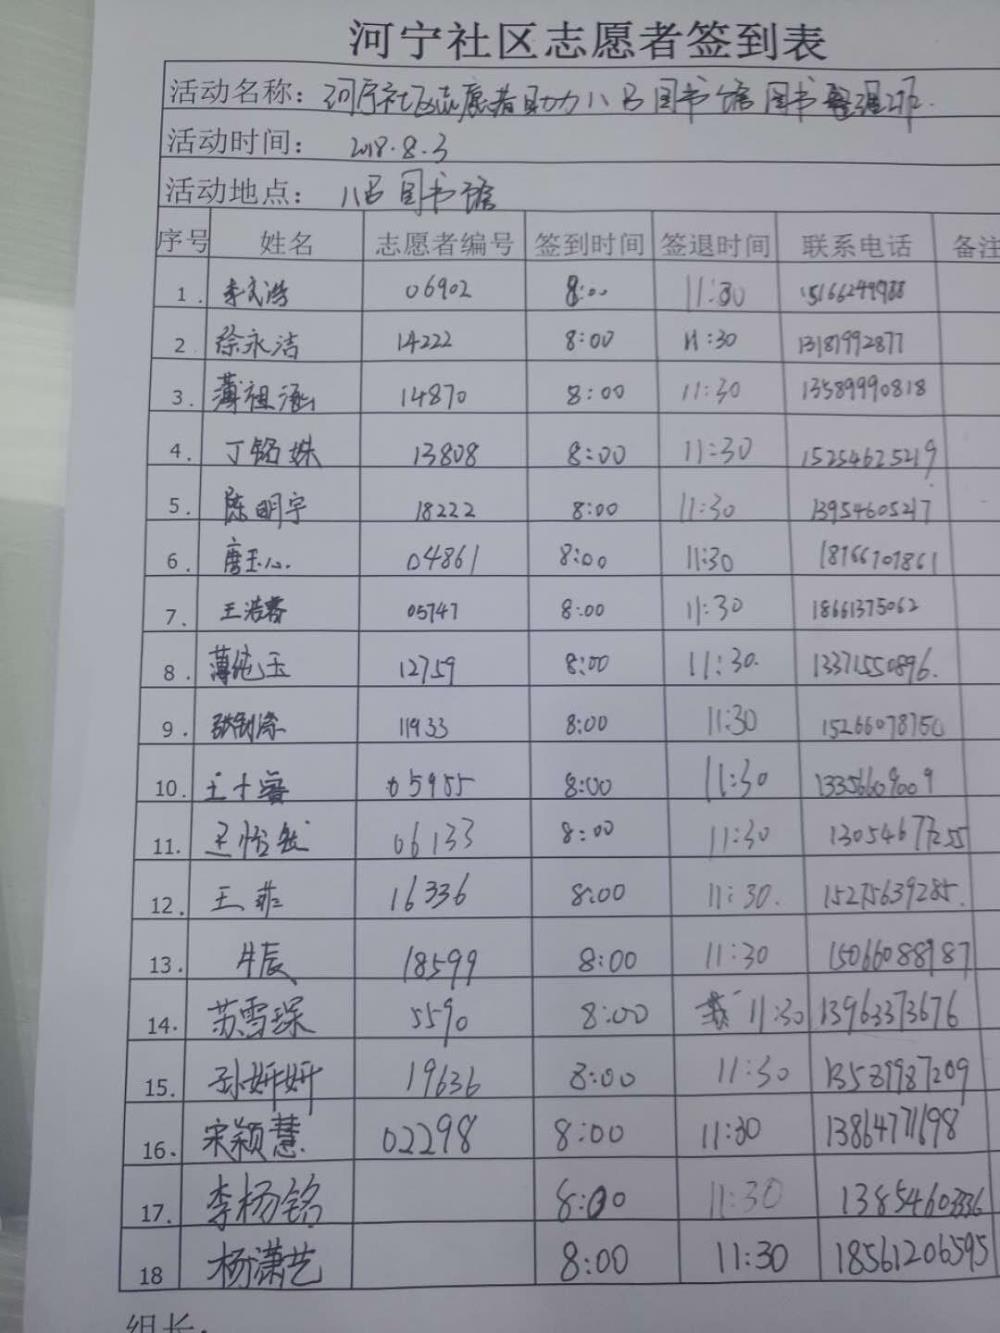 河宁社区志愿者签到表
活动名称：河宁社区志愿者助力八吕图书馆图书整理
活动时间： 2018.8.3
活动地点： 八吕图书馆
序号 姓名 志愿者编号 签到时间 签退时间 联系电话 备注
1. 李文浩 06902 8:00 11:30 15166244988
2 徐永洁 14222 8:00 11:30 13181992877
3. 薄祖涵 14870 8:00 11:30 13589990818
4. 丁铭姝 13808 8:00 11:30 15254625219
5. 陈明宇 18222 8:00 11:30 13954605217
6. 唐玉心 04861 8:00 11:30 18766707861
7. 王浩睿 05747 8:00 11:30 18661375062
8. 薄纯玉 12759 8:00 11:30. 13371550896.
9. 11933 8:00 11:30 15266078750
10. 王十睿 05955 8:00 11:30 13356609009
11. 06133 8:00 11:30 13054677255
12. 王菲 16336 8:00 11:30. 15275639285.
13. 牛辰 18599 8:00 11:30 15066088987
14. 苏雪琛 5590 8:00 11:30 13963373676
15. 孙妍妍 19636 8:00 11:30 13589987209
16. 宋颖慧 02298 8:00 11:30 13864771698
17. 李杨铭 8:00 11:30 13854603336
18 杨潇艺 8:00 11:30 18561206595
组长: